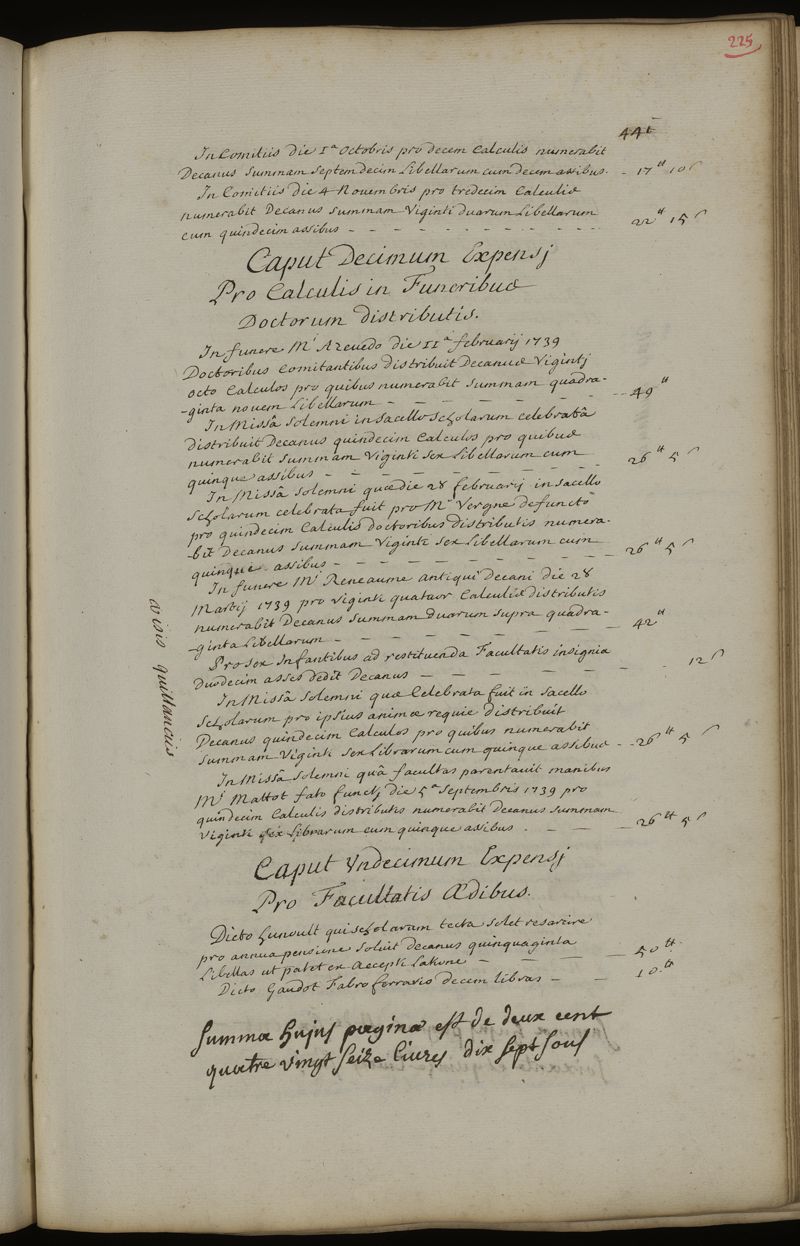 225
441
In Comitiis die 1ª Octobris pro decem Calculis numerabit
Decanus Summam Septemdecim Libellarum cum decem assibus. - 17 tt 10 s
In Comitiis die 4 Novembris pro tredecim Calculis
numerabit Decanus Summam Viginti duarum Libellarum
cum quindecim assibus - - - - - - - - - - 22 tt 15 s
Caput Decimum Expensj
Pro Calculis in Funeribus
Doctorum distributis.
In funere Mi Azevedo die 11ª februarij 1739
Doctoribus Comitantibus distribuit Decanus Vigintj
octo Calculos pro quibus numerabit Summam quadra-
-ginta novem Libellarum - - - - - - - 49 tt
In Missâ Solemni in Sacello Scholarum celebratâ
distribuit Decanus quindecim Calculos pro quibus
numerabit Summam Viginti Sex Libellarum cum
quinque assibus - - - - - - - - 26 tt 5 s
In Missâ Solemni quæ die 28 februarij in sacello
Scholarum celebrata fuit pro Mo Vergne defuncto
pro quindecim Calculis doctoribus distributis numera-
-bit Decanus Summam Viginti Sex Libellarum cum
quinque assibus - - - - - - - - 26 tt 5 s
In funere Mi Reneaume antiqui Decani die 28
Martij 1739 pro viginti quatuor Calculis distributis
numerabit Decanus Summam duarum supra quadra-
-ginta Libellarum - - - - - - - - 42 tt
Pro sex Infantibus ad restituenda Facultatis insignia
Duodecim asses dedit Decanus - - - - - - 12 s
In Missâ Solemni quæ Celebrata fuit in sacello
Scholarum pro ipsius animæ requie distribuit
Decanus quindecim Calculos pro quibus numerabit
Summam Viginti Sex Librarum cum quinque assibus - - 26 tt 5 s
In Missâ Solemni quâ facultas parentavit manibus
Mi Mattot fato functj die 5ª Septembris 1739 pro
quindecim Calculis distributis numerabit Decanus Summam
Viginti sex Librarum cum quinque assibus . - - - 26 tt 5 s
visis quittanciis
Caput Undecimum Expensj
Pro Facultatis Ædibus.
Dicto hunoult qui scholarum tecta solet resarcire
pro annua pensione Soluit decanus quinquaginta
Libellas ut patet ex accepti Latione - - - - 50 tt
Dicto Gaudot Fabro ferrario decem libras - - - 10 tt
Summa hujus paginæ est de deux cent
quatre vingt Seize livres dix sept sous